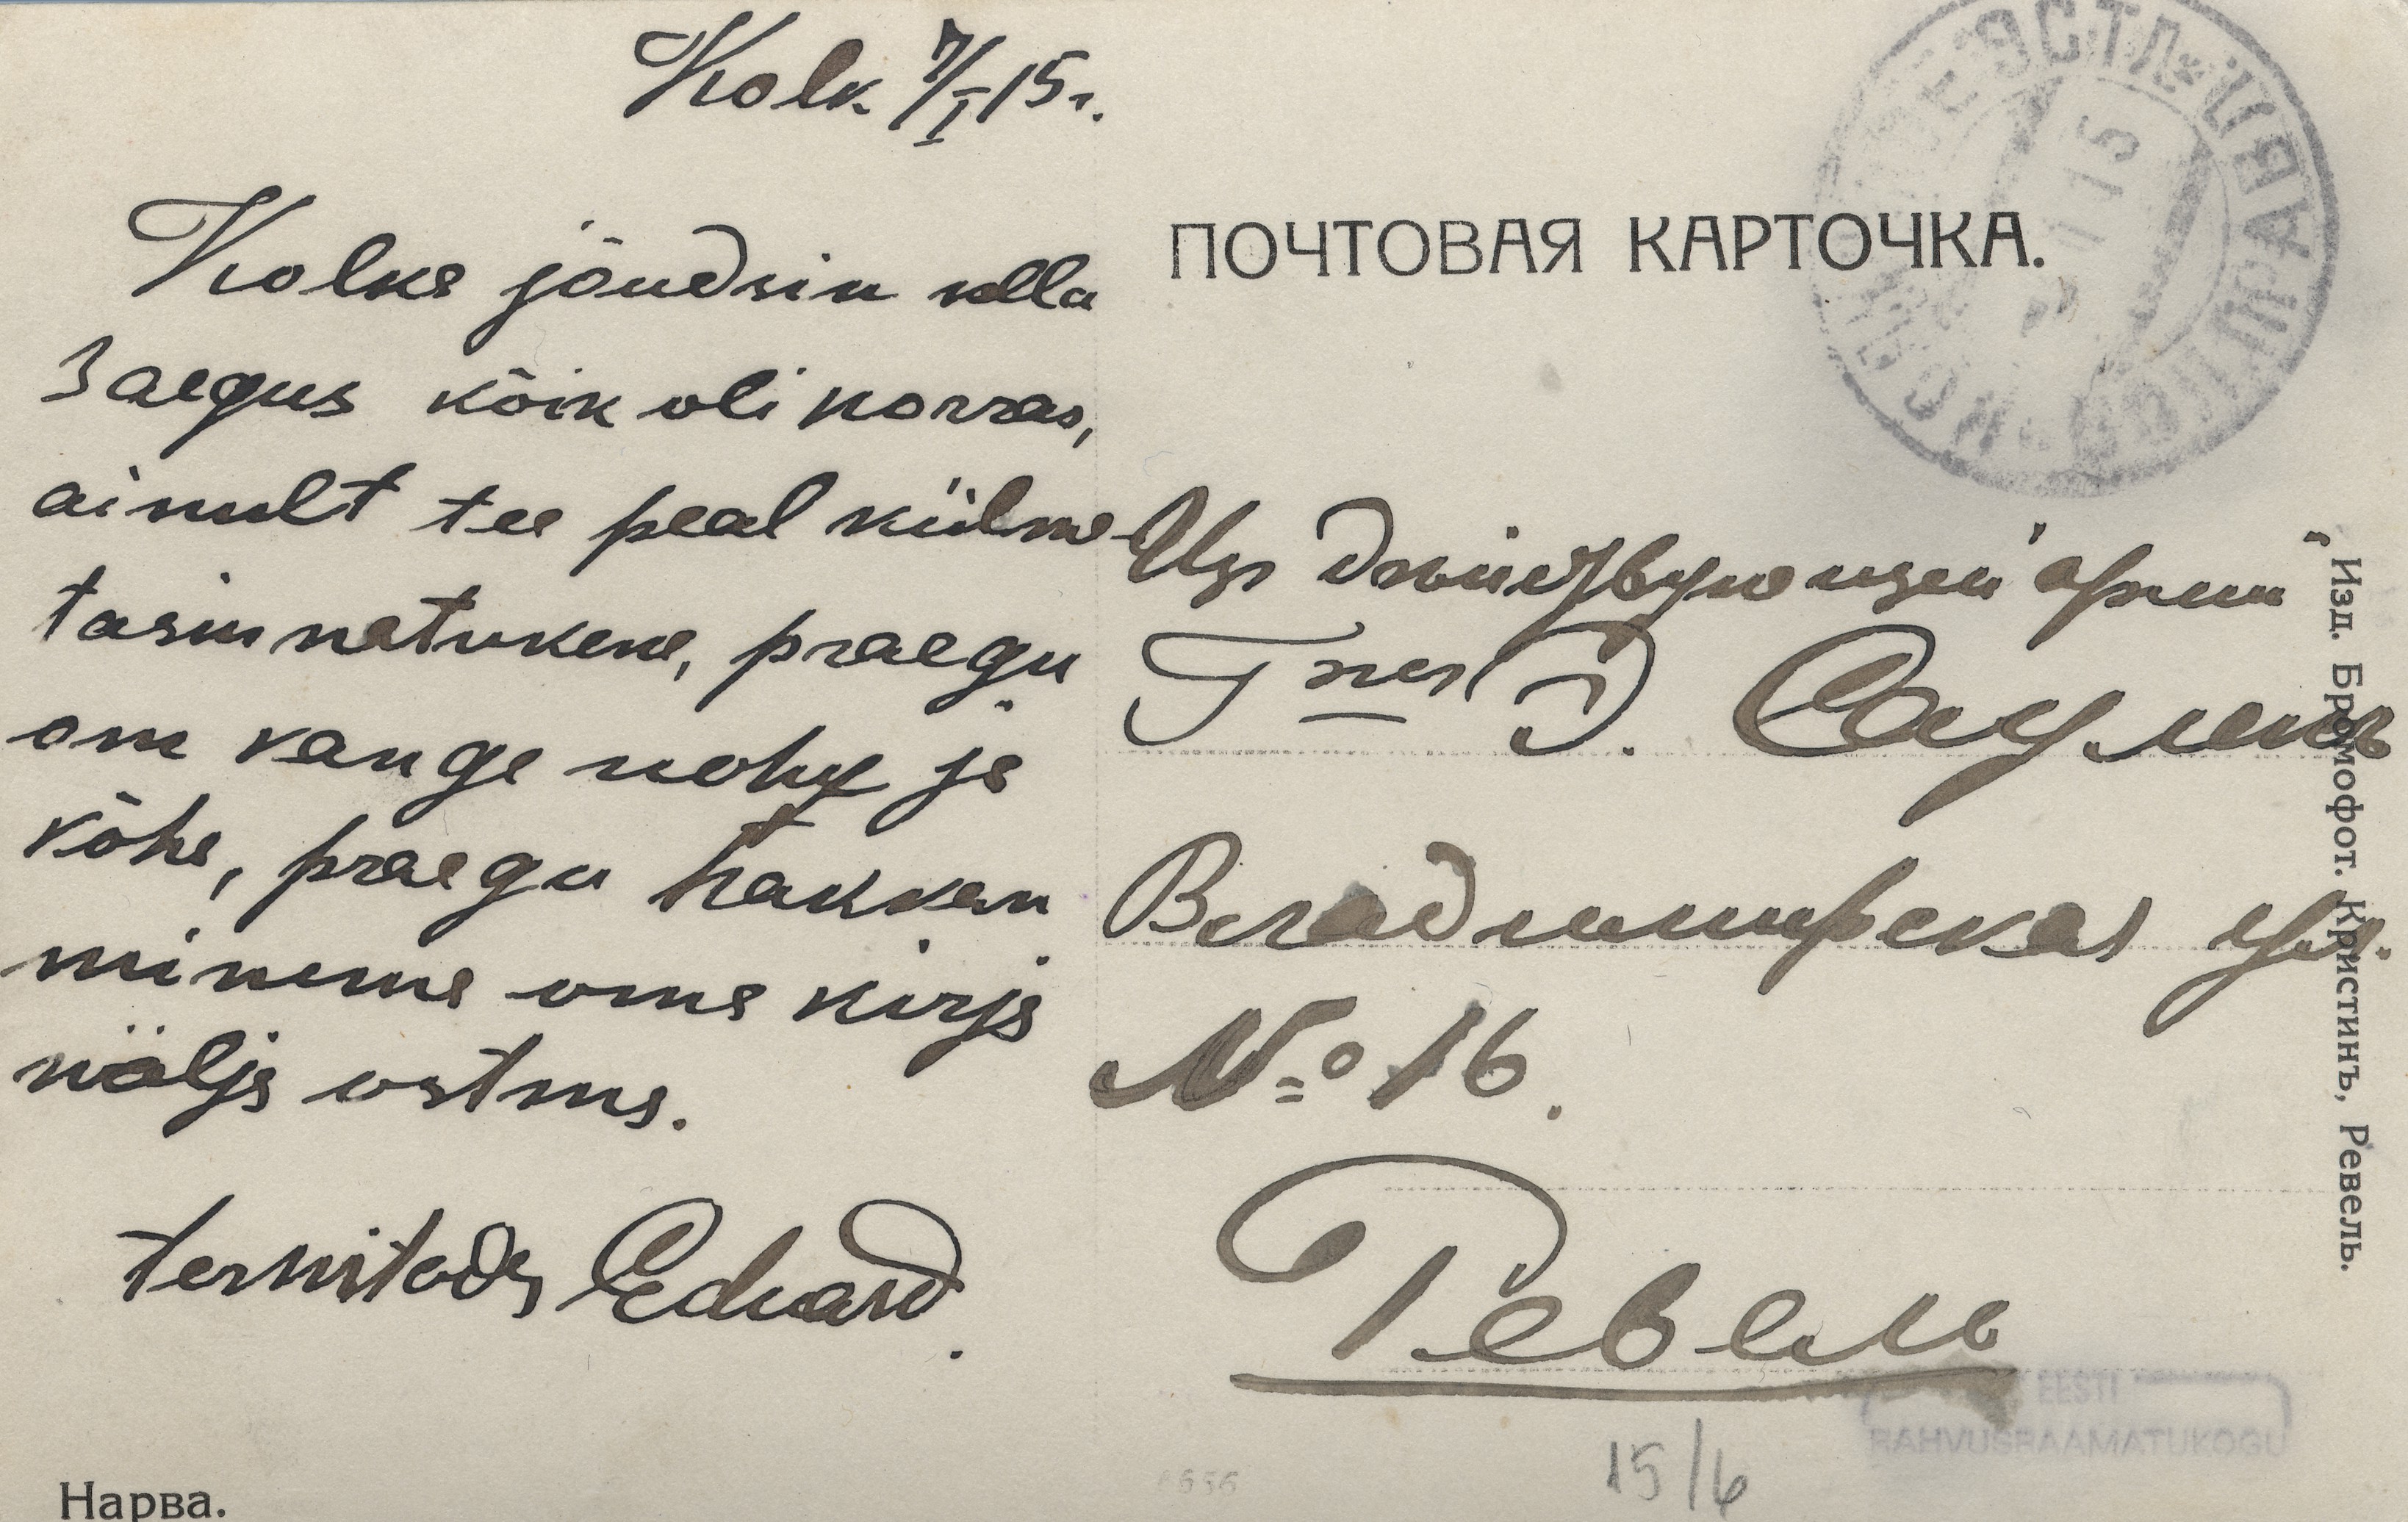 Kolk 7/I 15 г.
Kolka jõudsin kella
3 aegus kõik oli korras,
ainult tee peal külme-
tasin natukene, praegu
om kange nohu ja
köha, praegu hakkan
minema oma kirja
nälja ostma.
tervitades Eduard.
ПОЧТОВАЯ КАРТОЧКА.
Изъ армии
Э.
Владимирская ул.
№ 16.
Ревель
Изд. Бромофот. Кристинъ, Ревель.
EESTI
RAHVUSRAAMATUKOGU
15/6
6656
Нарва.